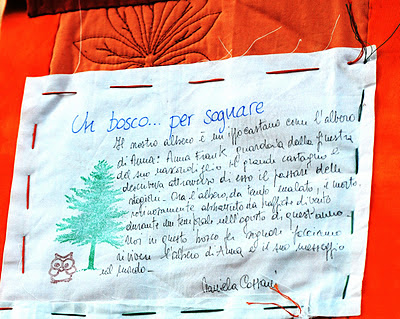 Un bosco... per sognare
Il nostro albero è un ippocastano come l'albero
di Anna: Anna Frank guardava dalla finestra
del suo nascondiglio il grande castagno e
descriveva attraverso di esso il passare delle
stagioni. Ora l'albero, da tempo malato, è morto,
rovinosamente abbattuto da raffiche di vento
durante un temporale nell'agosto di quest'anno.
Noi in questo bosco dei sogni facciamo
rivivere l'albero di Anna e il suo messaggio
nel mondo.